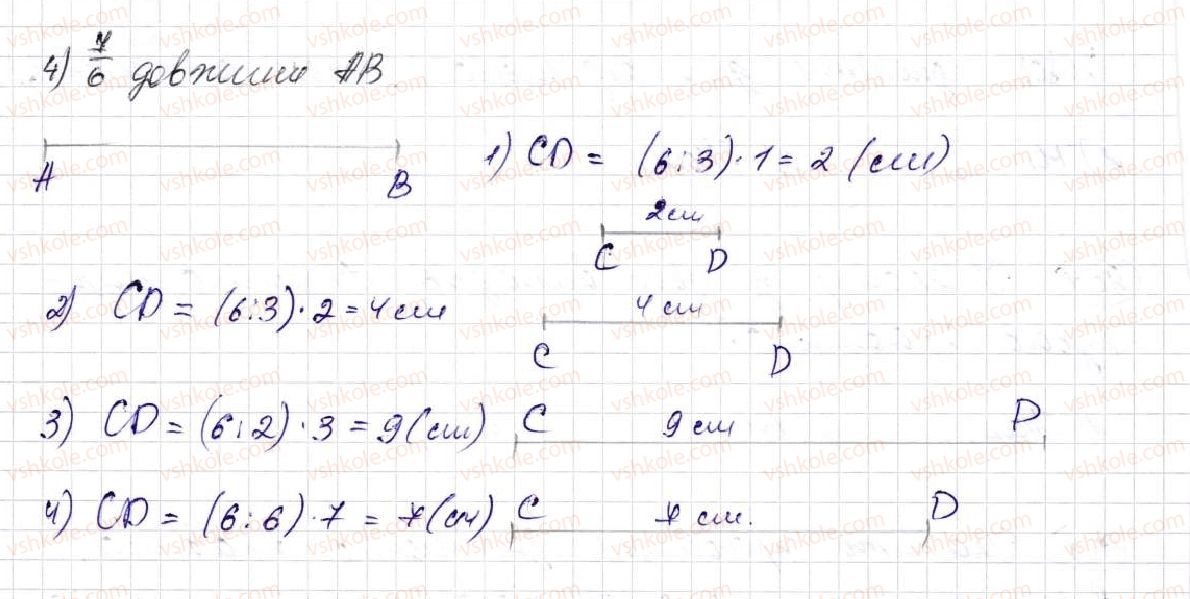 4) 7/6 довжини AB
A B
1) CD = (6:3)·1 = 2 (см)
2 см
C D
2) CD = (6:3)·2 = 4 см
4 см
C D
3) CD = (6:2)·3 = 9 (см)
C 9 см D
4) CD = (6:6)·7 = 7 (см)
C 7 см. D
vshkole.com